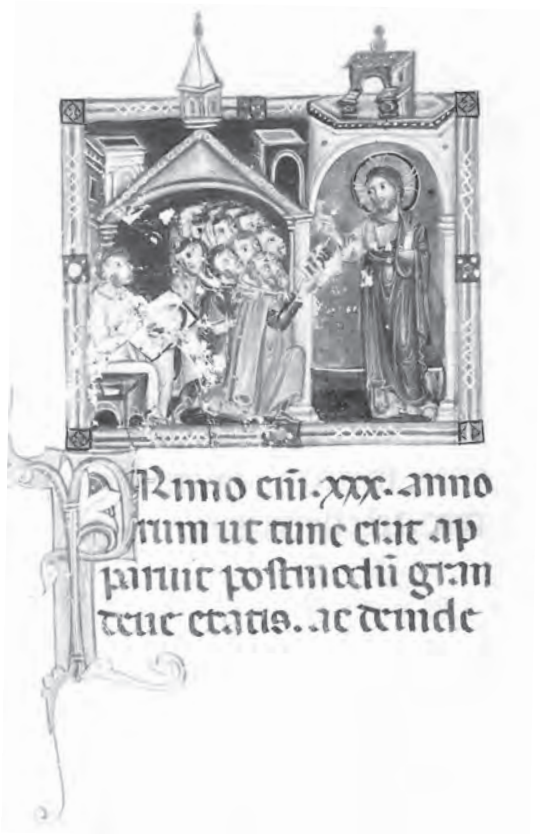 PRimo enī .xxx. anno
rum ut tunc erat ap
paruit postmodū gran
deue etatis. ac deinde